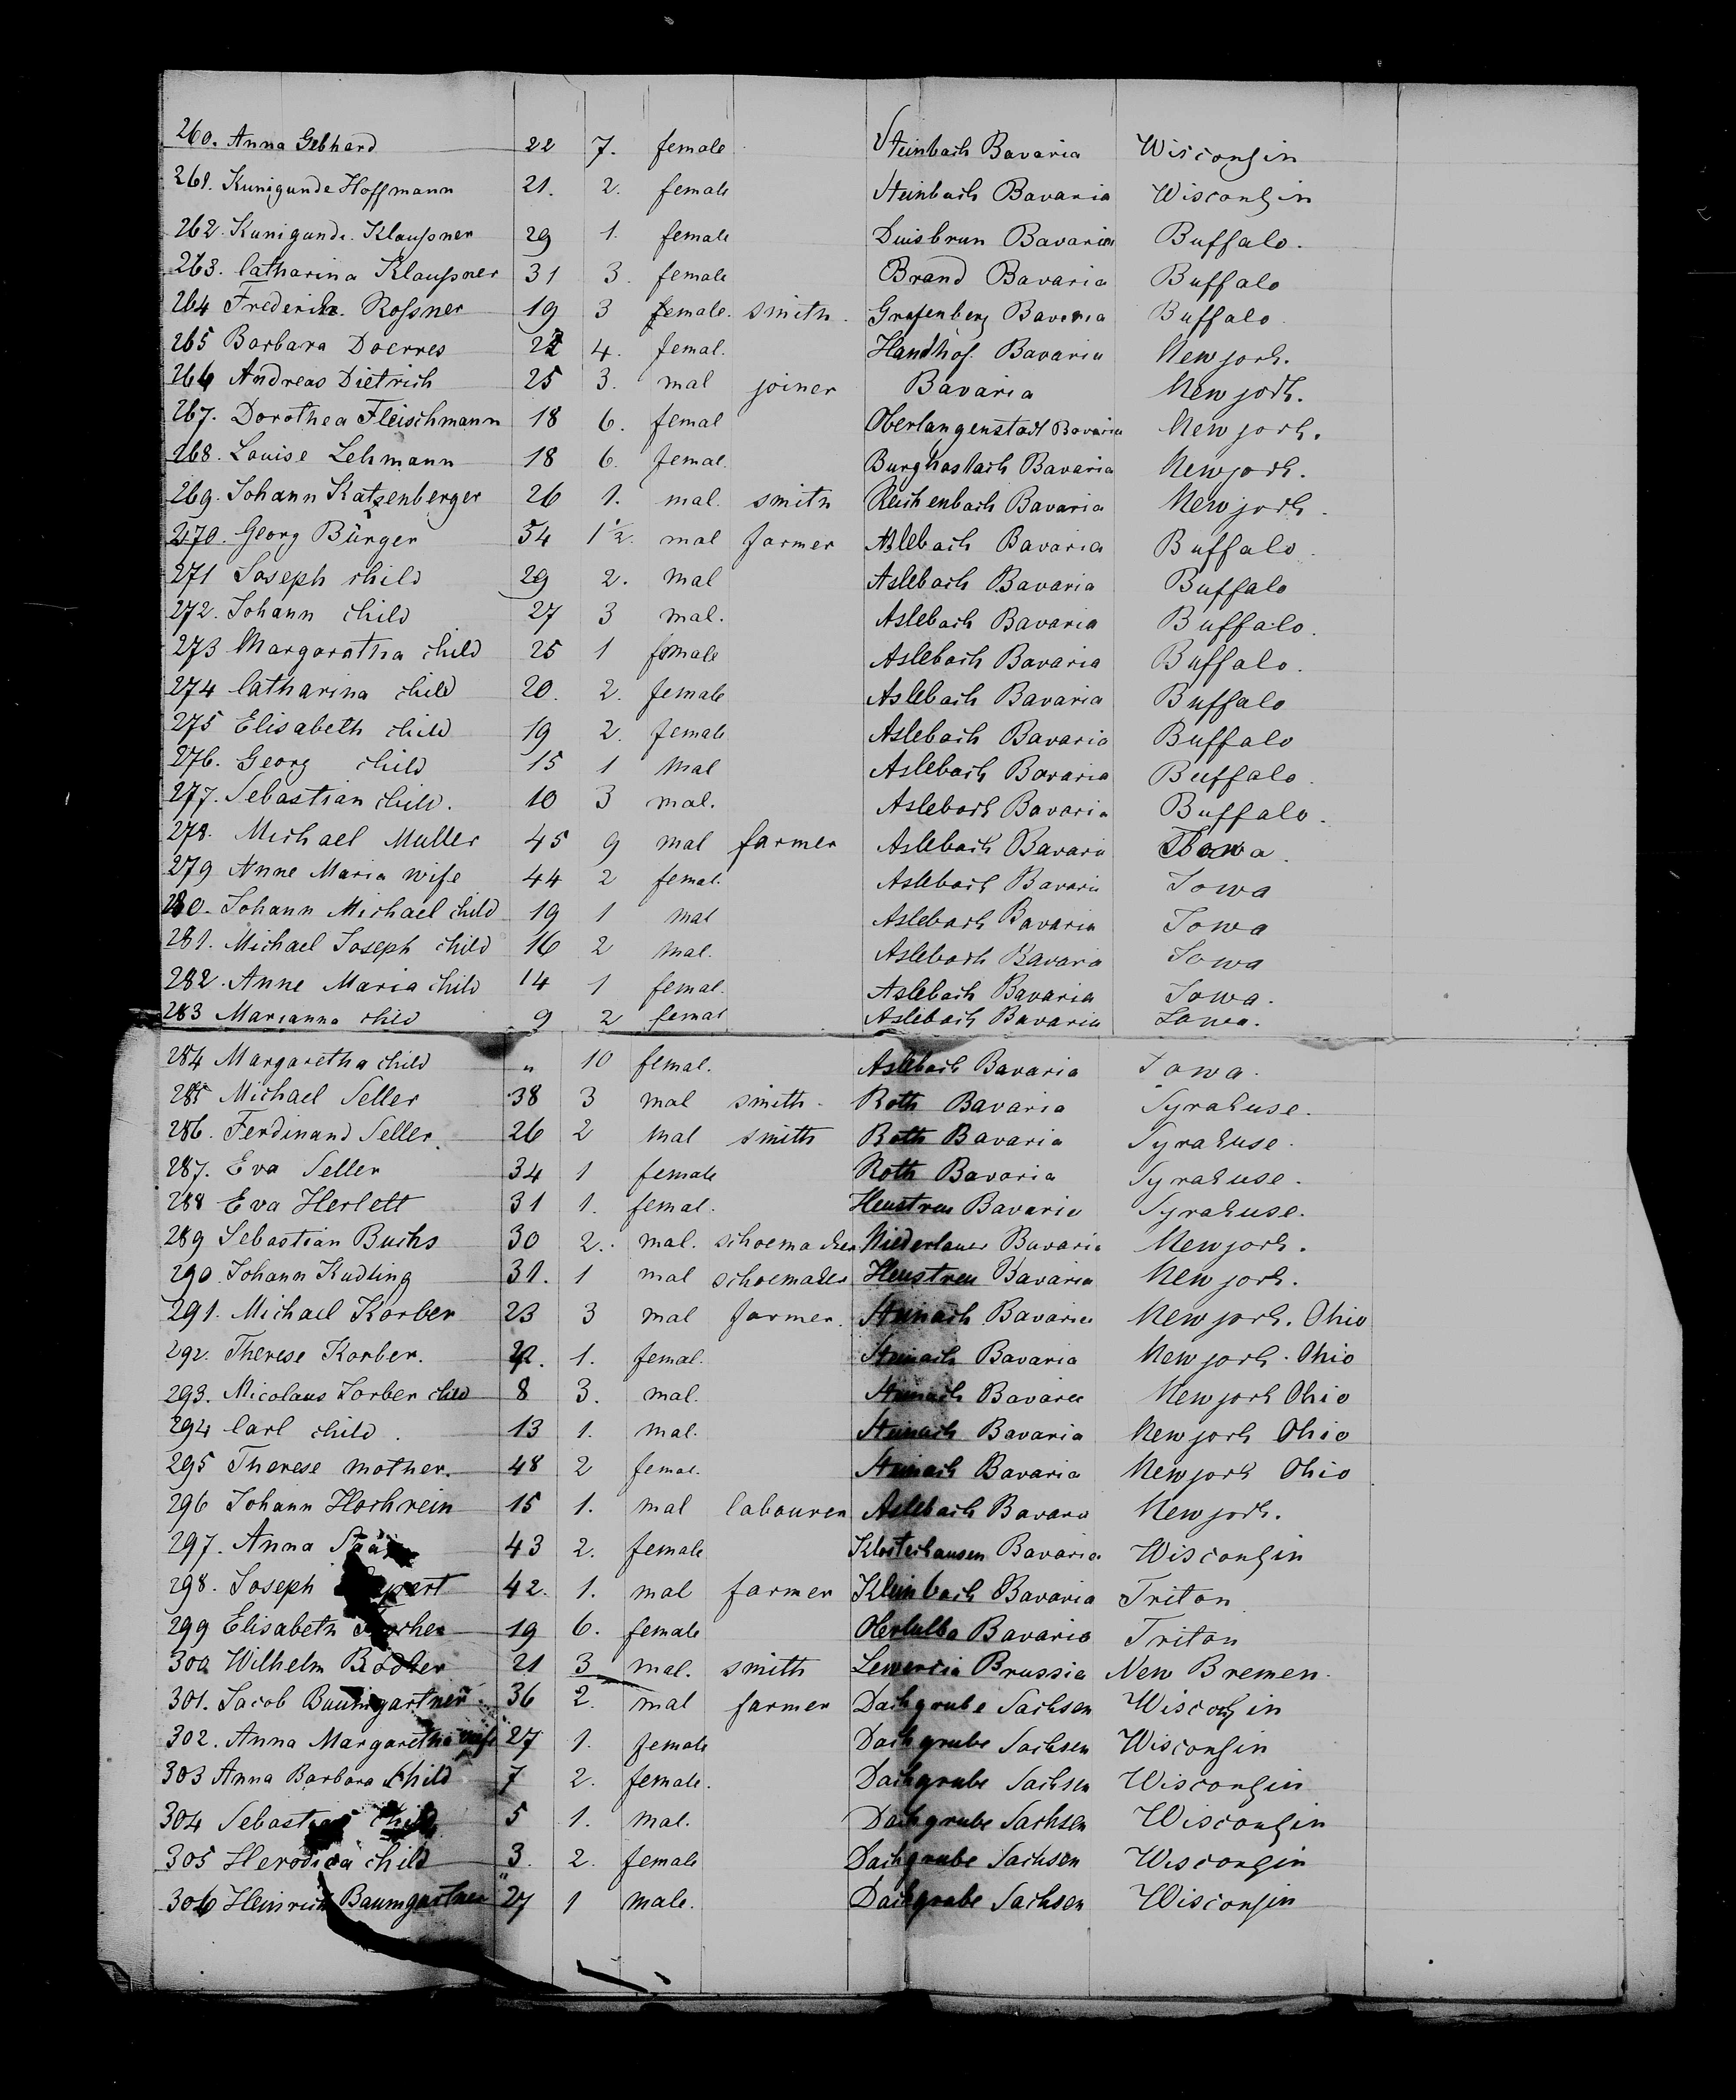 260. Anna Gebhard 22 7. female Steinbach Bavaria Wisconsin
261. Kunigunde Hoffmann 21. 2. female Steinbach Bavaria Wisconsin
262. Kunigunde. Klaußner 29 1. female Duisbrun Bavaria Buffalo.
263. Catharina Klaußner 31 3. female Brand Bavaria Buffalo
264 Frederich. Roßner 19 3 female. smith. Grafenberg Bavaria Buffalo.
265 Barbara Doerres 22 4. femal. Handhof. Bavaria New jork.
266 Andreas Dietrich 25 3. mal joiner Bavaria New jork.
267. Dorothea Fleischmann 18 6. femal Oberlangenstadt Bavaria New jork.
268. Louise Lehmann 18 6. femal. Burghaslach Bavaria New jork.
269. Johann Katzenberger 26 1. mal. smith Reichenbach Bavaria New jork.
270. Georg Bürger 54 1½. mal farmer Aslebach Bavaria Buffalo.
271 Joseph child 29 2. mal Aslebach Bavaria Buffalo
272. Johann child 27 3 mal. Aslebach Bavaria Buffalo.
273 Margaratha child 25 1 female Aslebach Bavaria Buffalo.
274 Catharina child 20. 2. female Aslebach Bavaria Buffalo
275 Elisabeth child 19 2. female Aslebach Bavaria Buffalo
276. Georg child 15 1 mal Aslebach Bavaria Buffalo.
277. Sebastian child. 10 3 mal. Aslebach Bavaria Buffalo.
278. Michael Muller 45 9 mal farmer Aslebach Bavaria Iowa.
279 Anne Maria wife 44 2 femal. Aslebach Bavaria Iowa
280. Johann Michael child 19 1 mal Aslebach Bavaria Iowa
281. Michael Joseph child 16 2 mal. Aslebach Bavaria Iowa
282. Anne Maria child 14 1 femal. Aslebach Bavaria Iowa.
283 Marianna child 9 2 femal Aslebach Bavaria Iowa.
284 Margaretha child " 10 femal. Aslebach Bavaria Iowa.
285 Michael Seller 38 3 mal smith. Roth Bavaria Syrakuse.
286. Ferdinand Seller. 26 2 mal smith Roth Bavaria Syrakuse.
287. Eva Seller 34 1 female Roth Bavaria Syrakuse.
288 Eva Herlett 31 1. femal. Heustreu Bavaria Syrakuse.
289 Sebastian Buchs 30 2. mal. schoemacker Niederlauer Bavaria New jork.
290. Johann Kudling 31. 1 mal schoemaker Heustreu Bavaria New jork.
291. Michael Korber 23 3 mal farmer. Steinach Bavaria New jork. Ohio
292. Therese Korber. 22. 1. femal. Steinach Bavaria New jork. Ohio
293. Nicolaus Korber child 8 3. mal. Steinach Bavaria New jork Ohio
294 Carl child. 13 1. mal. Steinach Bavaria New jork Ohio
295 Therese mother. 48 2 femal. Steinach Bavaria New jork Ohio
296 Johann Hochrein 15 1. mal labourer Aslebach Bavaria New jork.
297. Anna 43 2. female Klosterhausen Bavaria Wisconsin
298. Joseph 42. 1. mal farmer Kleinbach Bavaria Triton
299 Elisabeth 19 6. female Oberlulba Bavaria Triton
300 Wilhelm Bodker 21 3 mal. smith Prussia New Bremen.
301. Jacob Baumgartner. 36 2. mal farmer Dachgrube Sachsen Wisconsin
302. Anna Margaretha wife 27 1. female Dachgrube Sachsen Wisconsin
303 Anna Barbara child 7 2. female. Dachgrube Sachsen Wisconsin
304 Sebastian child 5 1. mal. Dachgrube Sachsen Wisconsin
305 Herodica child 3. 2. female Dachgrube Sachsen Wisconsin
306 Heinrich Baumgartner 27 1 male. Dachgrube Sachsen Wisconsin